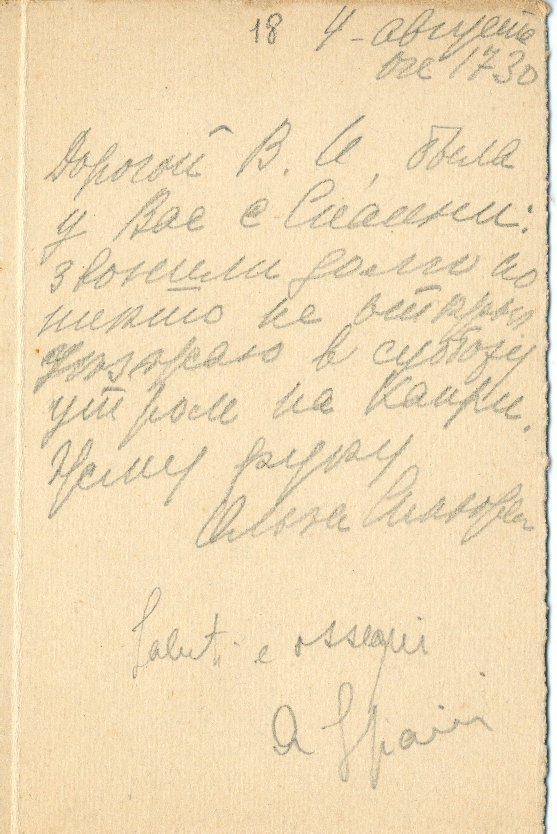 18 4 августа
ore 1730
Дорогой В. И, была
у Вас с Спаини:
звонили долго но
никто не открыл
Уезжаю в субботу
утром на Капри.
Жму руку
Ольга
Saluti e ossequi
A Spaini